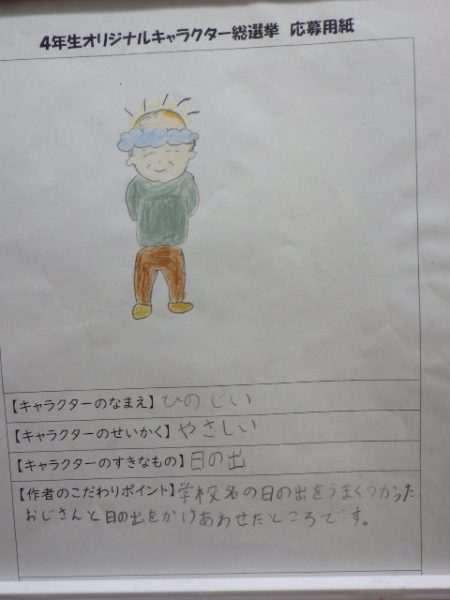 4年生オリジナルキャラクター総選挙 応募用紙
【キャラクターのなまえ】ひのじい
【キャラクターのせいかく】やさしい
【キャラクターのすきなもの】日の出
【作者のこだわりポイント】学校名の日の出をうまくつかった
おじさんと日の出をかけあわせたところです。